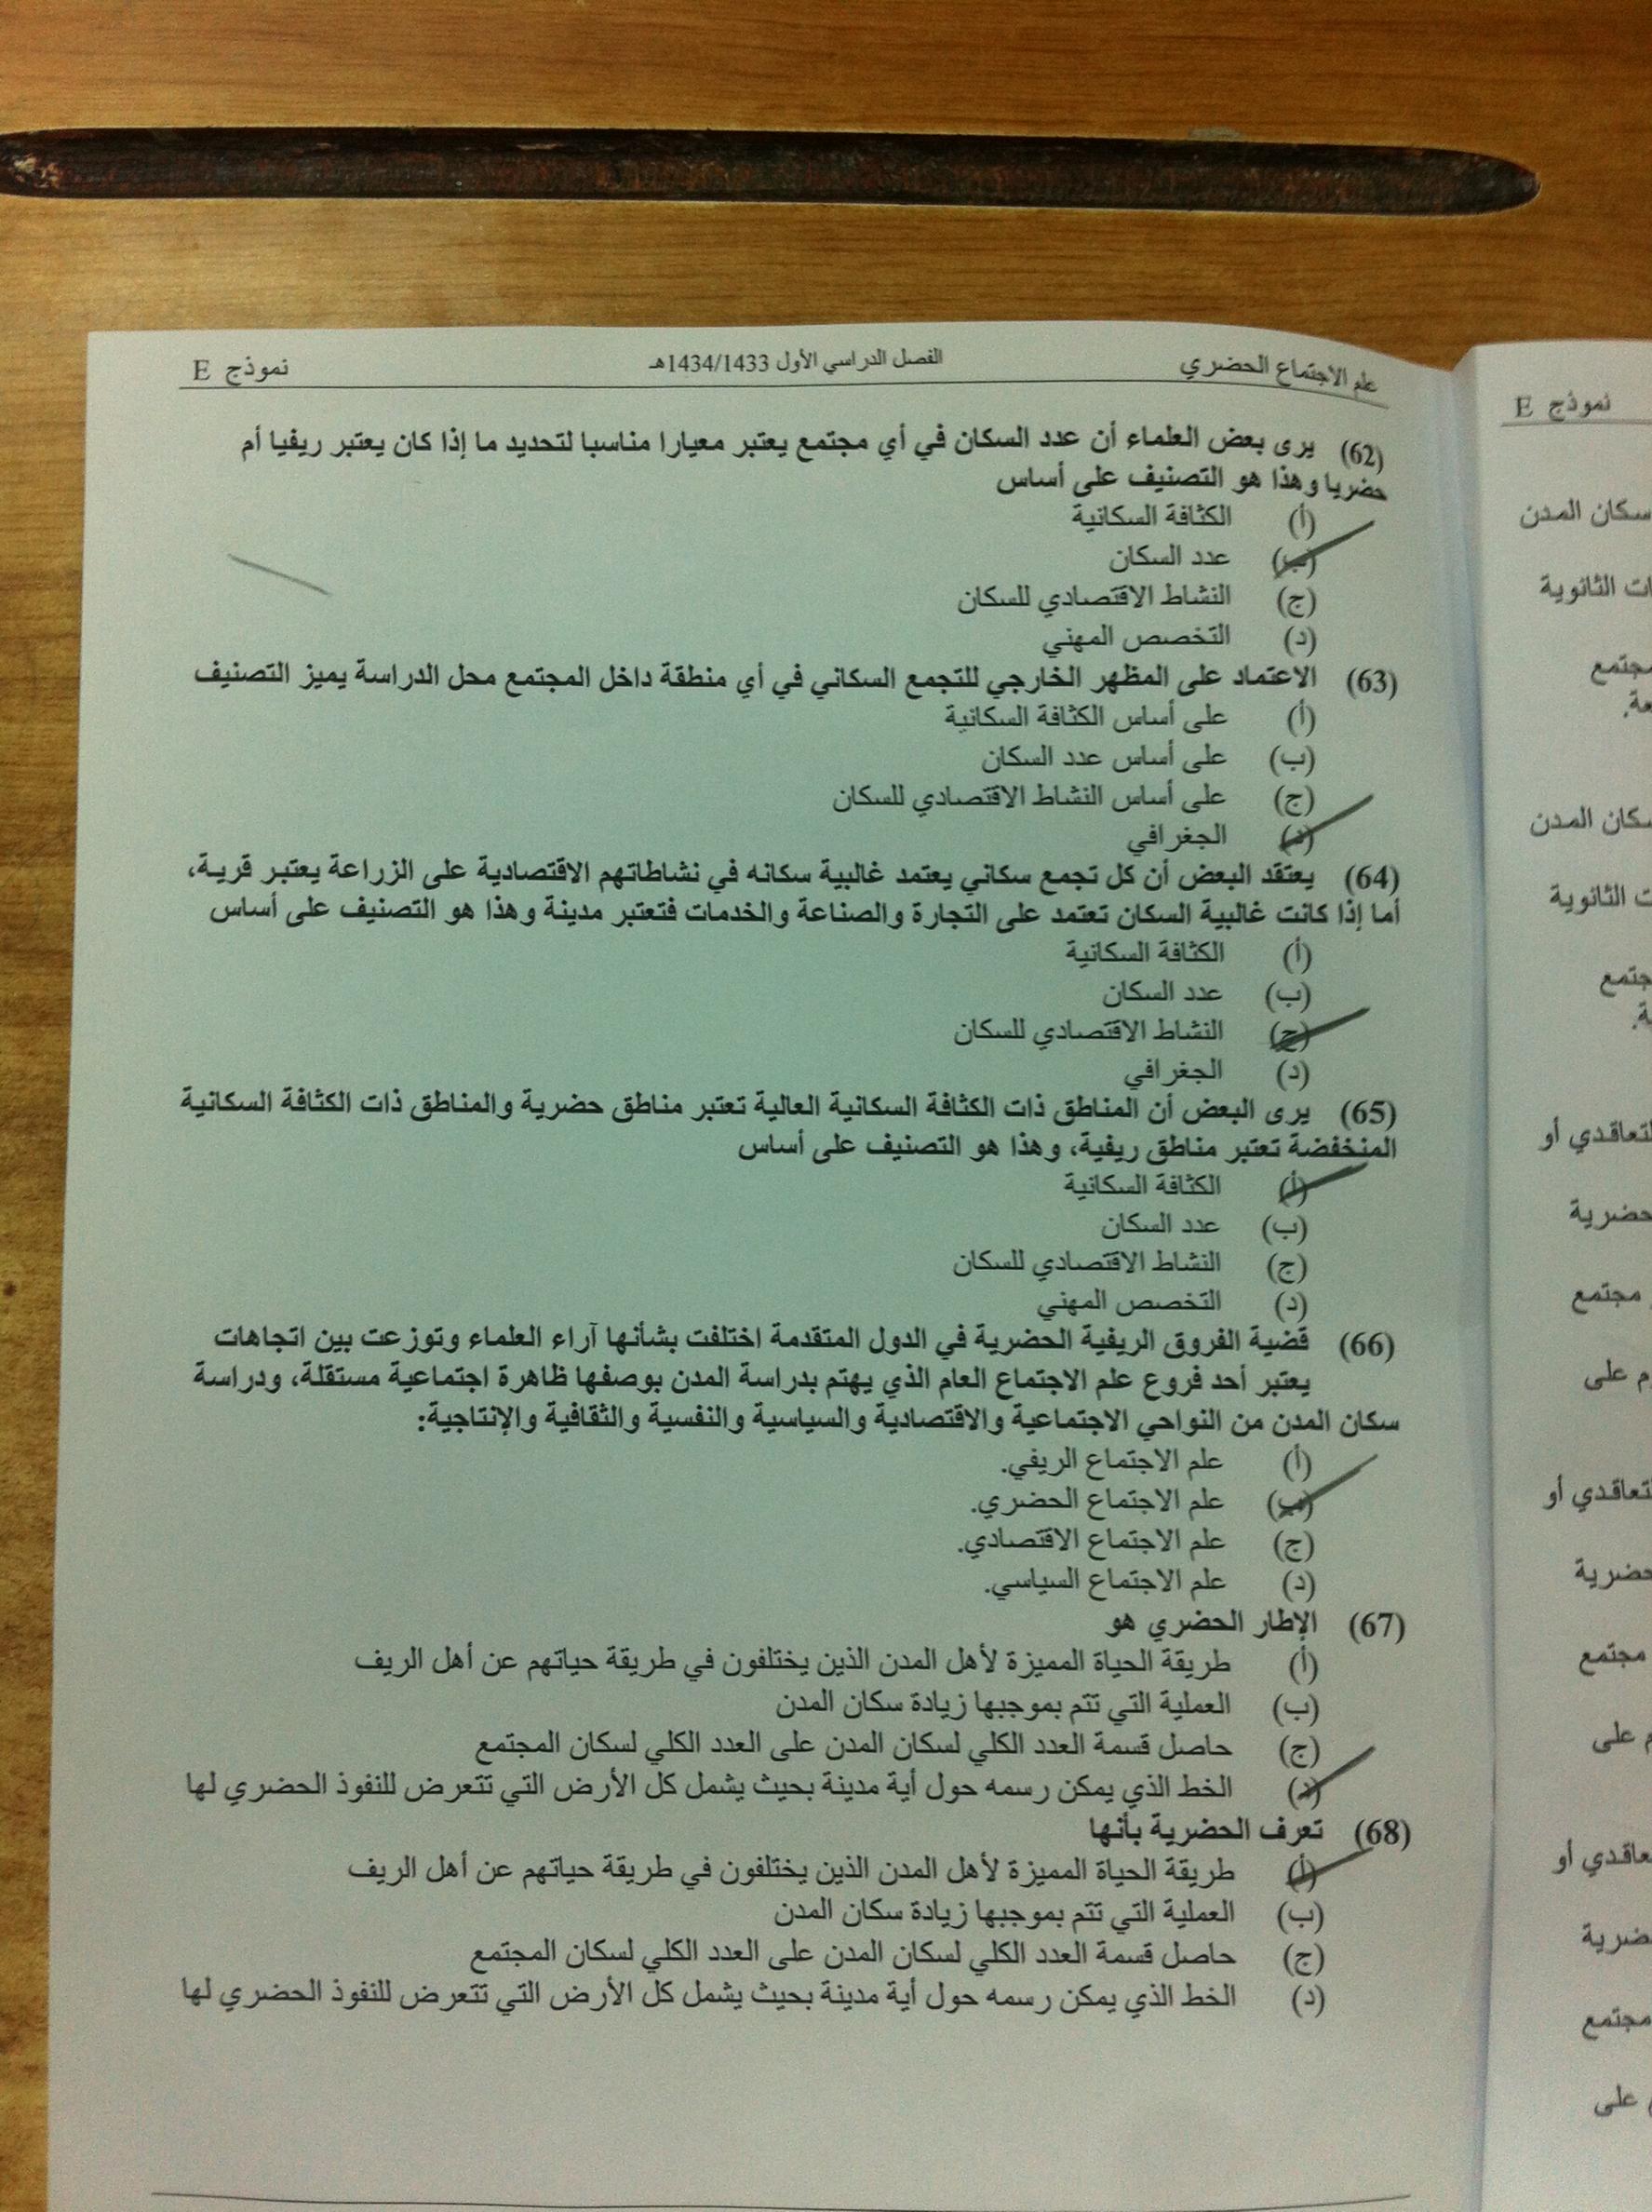 علم الاجتماع الحضري
الفصل الدراسي الأول 1434/1433هـ
نموذج E
(62) يرى بعض العلماء أن عدد السكان في أي مجتمع يعتبر معيارا مناسبا لتحديد ما إذا كان يعتبر ريفيا أم
حضريا وهذا هو التصنيف على أساس
(أ) الكثافة السكانية
(ب) عدد السكان
(ج) النشاط الاقتصادي للسكان
(د) التخصص المهني
(63) الاعتماد على المظهر الخارجي للتجمع السكاني في أي منطقة داخل المجتمع محل الدراسة يميز التصنيف
(أ) على أساس الكثافة السكانية
(ب) على أساس عدد السكان
(ج) على أساس النشاط الاقتصادي للسكان
(د) الجغرافي
(64) يعتقد البعض أن كل تجمع سكاني يعتمد غالبية سكانه في نشاطاتهم الاقتصادية على الزراعة يعتبر قرية،
أما إذا كانت غالبية السكان تعتمد على التجارة والصناعة والخدمات فتعتبر مدينة وهذا هو التصنيف على أساس
(أ) الكثافة السكانية
(ب) عدد السكان
(ج) النشاط الاقتصادي للسكان
(د) الجغرافي
(65) يرى البعض أن المناطق ذات الكثافة السكانية العالية تعتبر مناطق حضرية والمناطق ذات الكثافة السكانية
المنخفضة تعتبر مناطق ريفية، وهذا هو التصنيف على أساس
(أ) الكثافة السكانية
(ب) عدد السكان
(ج) النشاط الاقتصادي للسكان
(د) التخصص المهني
(66) قضية الفروق الريفية الحضرية في الدول المتقدمة اختلفت بشأنها آراء العلماء وتوزعت بين اتجاهات
يعتبر أحد فروع علم الاجتماع العام الذي يهتم بدراسة المدن بوصفها ظاهرة اجتماعية مستقلة، ودراسة
سكان المدن من النواحي الاجتماعية والاقتصادية والسياسية والنفسية والثقافية والإنتاجية:
(أ) علم الاجتماع الريفي.
(ب) علم الاجتماع الحضري.
(ج) علم الاجتماع الاقتصادي.
(د) علم الاجتماع السياسي.
(67) الإطار الحضري هو
(أ) طريقة الحياة المميزة لأهل المدن الذين يختلفون في طريقة حياتهم عن أهل الريف
(ب) العملية التي تتم بموجبها زيادة سكان المدن
(ج) حاصل قسمة العدد الكلي لسكان المدن على العدد الكلي لسكان المجتمع
(د) الخط الذي يمكن رسمه حول أية مدينة بحيث يشمل كل الأرض التي تتعرض للنفوذ الحضري لها
(68) تعرف الحضرية بأنها
(أ) طريقة الحياة المميزة لأهل المدن الذين يختلفون في طريقة حياتهم عن أهل الريف
(ب) العملية التي تتم بموجبها زيادة سكان المدن
(ج) حاصل قسمة العدد الكلي لسكان المدن على العدد الكلي لسكان المجتمع
(د) الخط الذي يمكن رسمه حول أية مدينة بحيث يشمل كل الأرض التي تتعرض للنفوذ الحضري لها
نموذج E
سكان المدن
الثانوية
سكان المدن
الثانوية
التعاقدي أو
حضرية
مجتمع
على
التعاقدي أو
حضرية
مجتمع
على
حضرية
مجتمع
على